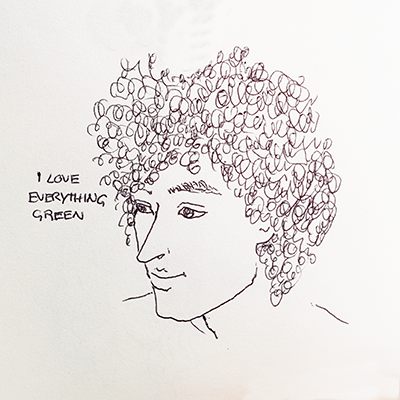 I LOVE
EVERYTHING
GREEN